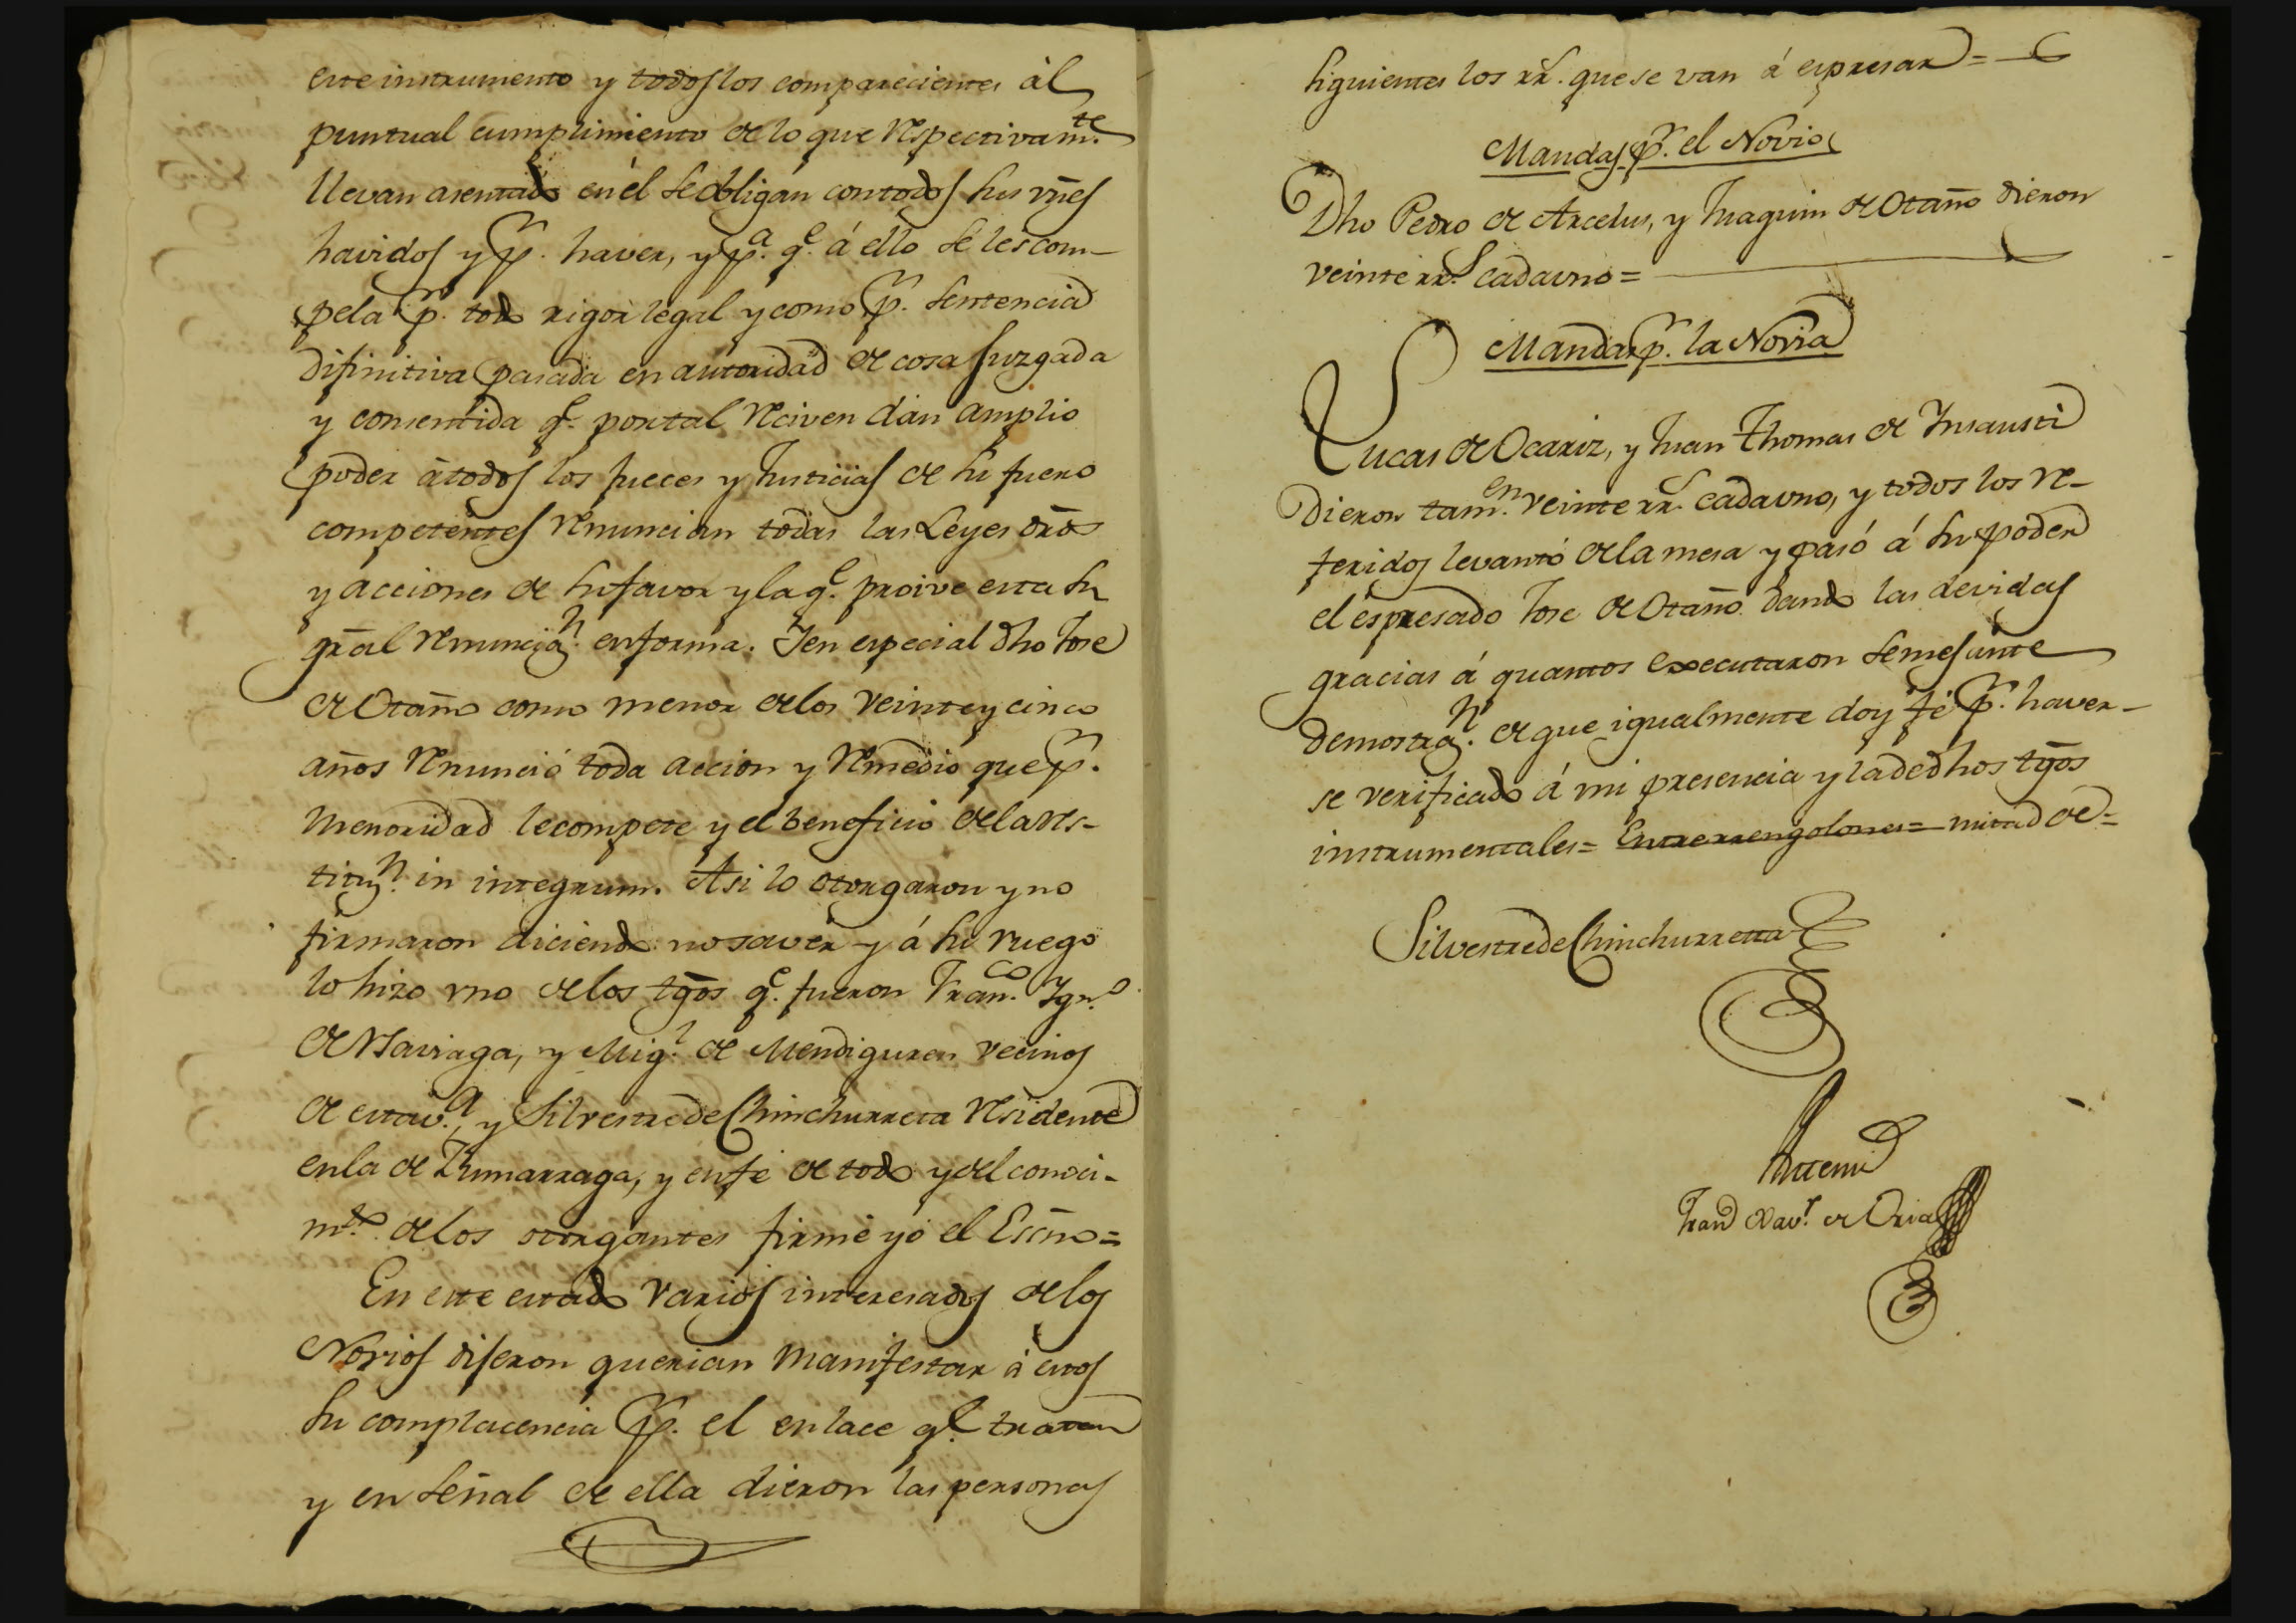 este instrumento y todos los comparecientes ál
puntual cumplimiento de lo que respectivamte.
llevan asentado en él se obligan con todos sus vnes
havidos y pr. haver, y pa. qe. á ello se les com-
pela pr. todo rigor legal y como pr. sentencia
difinitiva pasada en autoridad de cosa Juzgada
y consentida qe. por tal reciven dán amplio
poder á todos los Jueces y Justicias de su fuero
competentes renuncian todas las Leyes dros
y acciones de su favor y la qe. proive esta su
gral renuncian. en forma. Y en especial dho Jose
de Otaño como menor de los veinte y cinco
años renunció toda accion y remedio que pr.
menoridad le compete y el beneficio de la res-
titun. in integrum. Asi lo otorgaron y no
firmaron diciendo no saver y á su ruego
lo hizo vno de los tgos qe. fueron Franco. Igno.
de y Migl. de Mendiguren vecinos
de esta va. y Silvestre de Chinchurreta residente
en la de Zumarraga, y en fé de todo y del conoci-
mto. de los otorgantes firmé yó el Esno=
En este estado varios interesados de los
Novios dijeron querian manifestar á estos
su complacencia pr. el enlace qe. travan
y en señal de ella dieron las personas
siguientes los rrs. que se van á espresar=
Mandas pr. el Novio
Dho Pedro de Arcelus, y Juaquin de Otaño dieron
veinte rrs. cada uno=
Mandas pr. la Novia
Lucas de Ocariz, y Juan Thomas de Insausti
dieron tamen. veinte rrs. cada vno, y todos los re-
feridos levantó de la mesa y pasó á su poder
el espresado Jose de Otaño dando las devidas
gracias á quantos executaron semejante
demostran. de que igualmente doy fé pr. haver-
se verificado á mi presencia y la de dhos tgos
instrumentales= Entrerrengolones= mitad de=
Silvestre de Chinchurreta
Ante mi
Franco Xavr. de Oria